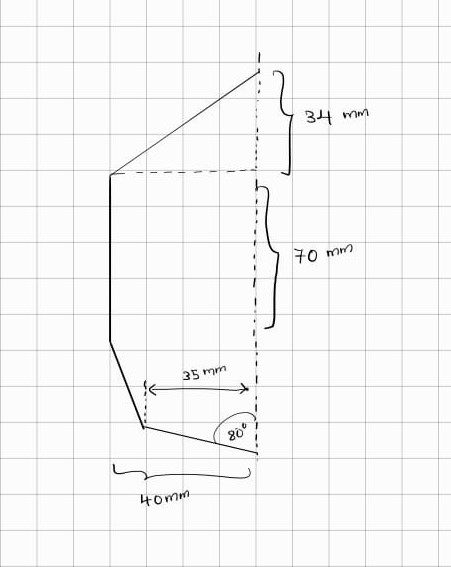 34 mm
70 mm
35 mm
80°
40mm